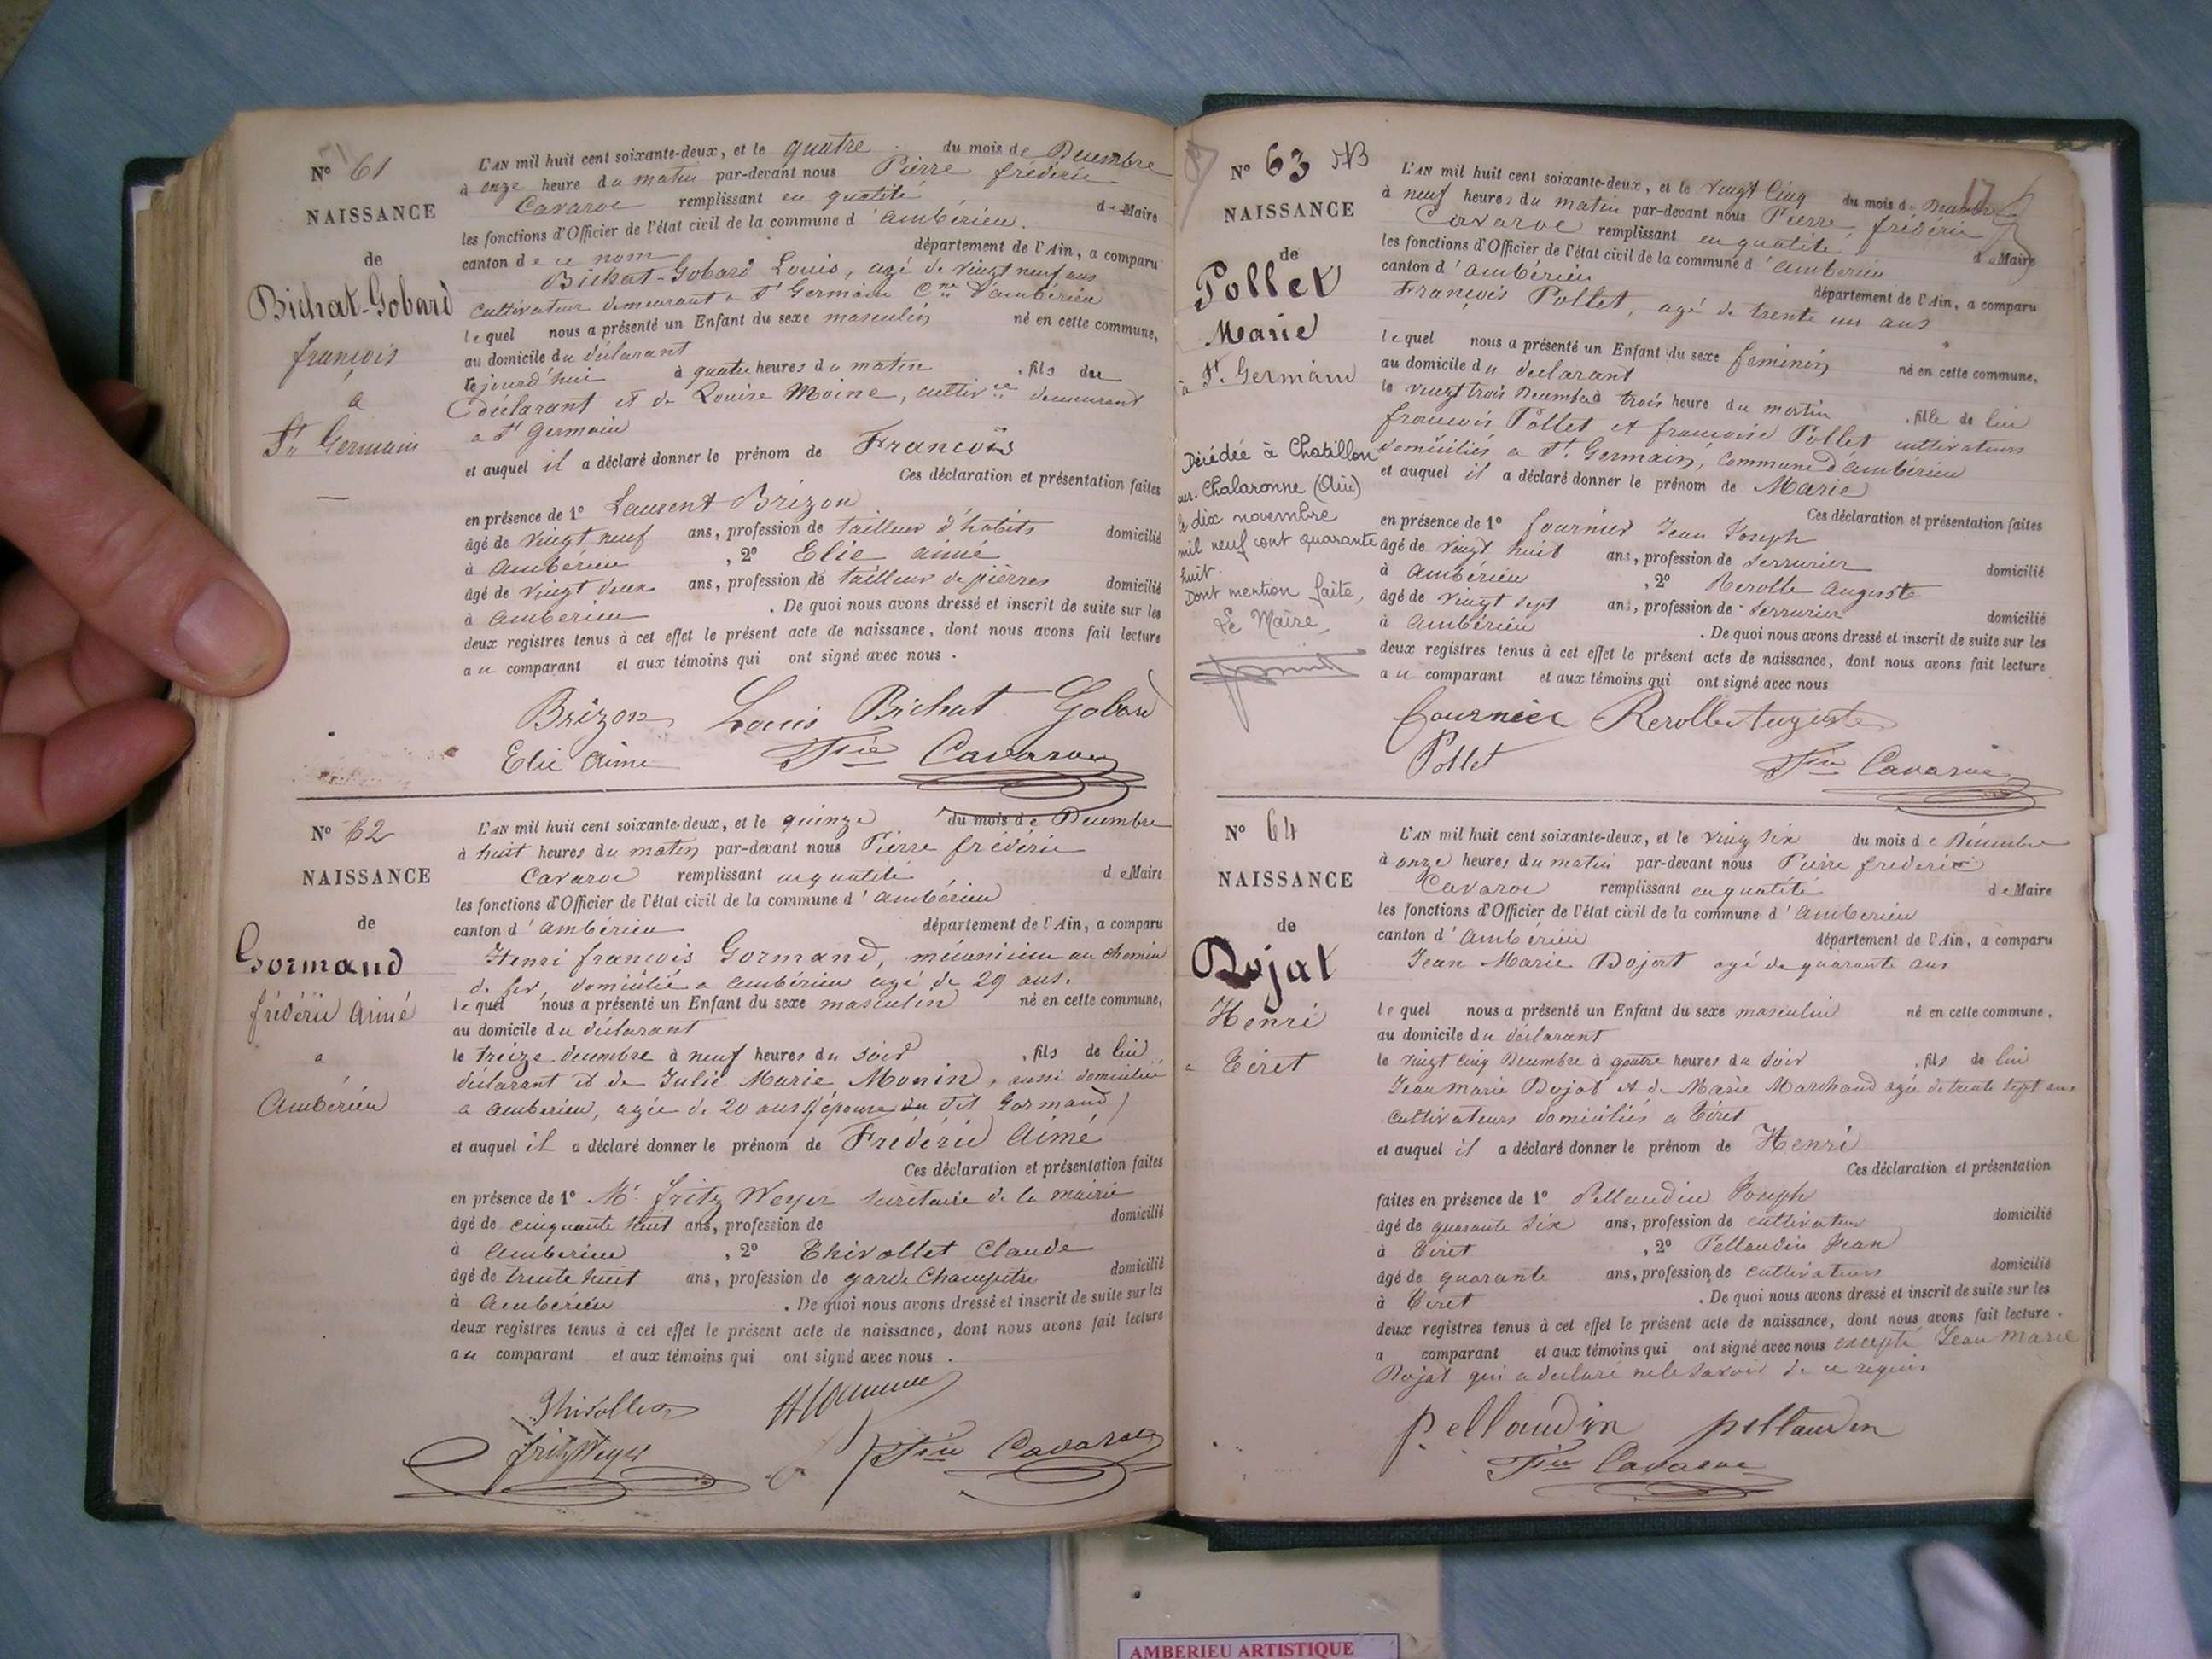 N° 61
NAISSANCE
de
Bichat-Gobard
françois
a
St Germain
L'AN mil huit cent soixante-deux, et le quatre du mois de Decembre
à onze heure du matin par-devant nous Pierre frédéric
Cavaroc remplissant en qualité de Maire
les fonctions d'Officier de l'état civil de la commune d'ambérieu.
canton de ce nom département de l'Ain, a comparu
Bichat-Gobard Louis, agé de vingt neuf ans
cultivateur demeurant a St Germain Cne d'ambérieu
lequel nous a présenté un Enfant du sexe masculin né en cette commune,
au domicile du déclarant
cejourd'hui à quatre heures du matin, fils du
déclarant et de Louise Moine, cultivce demeurant
a St Germain
et auquel il a déclaré donner le prénom de François
Ces déclaration et présentation faites
en présence de 1° Laurent Brizon
âgé de vingt neuf ans, profession de tailleur d'habits domicilié
à ambérieu, 2° Elie aimé
âgé de vingt deux ans, profession de tailleur de pierres domicilié
à ambérieu. De quoi nous avons dressé et inscrit de suite sur les
deux registres tenus à cet effet le présent acte de naissance, dont nous avons fait lecture
au comparant et aux témoins qui ont signé avec nous.
Brizon Louis Bichat Gobard
Elie Aimé Fic Cavaroc
N° 62
NAISSANCE
de
Gormand
frédéric Aimé
a
Ambérieu
L'AN mil huit cent soixante-deux, et le quinze du mois de Decembre
à huit heures du matin par-devant nous Pierre frédéric
Cavaroc remplissant en qualité de Maire
les fonctions d'Officier de l'état civil de la commune d'ambérieu
canton d'ambérieu département de l'Ain, a comparu
Henri françois Gormand, mécanicien au chemin
de fer, domicilié a ambérieu agé de 29 ans.
lequel nous a présenté un Enfant du sexe masculin né en cette commune,
au domicile du déclarant
le treize decembre à neuf heures du soir, fils de lui
déclarant et de Julie Marie Monin, aussi domiciliée
a amberieu, agée de 20 ans (épouse du dit Gormand)
et auquel il a déclaré donner le prénom de Frédéric Aimé
Ces déclaration et présentation faites
en présence de 1° Mr. fritz Weyer secrétaire de la mairie
âgé de cinquante huit ans, profession de domicilié
à Amberieu, 2° Thivollet Claude
âgé de trente huit ans, profession de garde Champêtre domicilié
à Ambérieu. De quoi nous avons dressé et inscrit de suite sur les
deux registres tenus à cet effet le présent acte de naissance, dont nous avons fait lecture
au comparant et aux témoins qui ont signé avec nous.
Thivollet
fritz Weyer Fic Cavaroc
N° 63 NB
17
NAISSANCE
de
Pollet
Marie
à St. Germain
Décédée à Chatillon
sur-Chalaronne (Ain)
le dix novembre
mil neuf cent quarante
huit.
Dont mention faite,
Le Maire,
L'AN mil huit cent soixante-deux, et le vingt Cinq du mois de Decembre
à neuf heures du matin par-devant nous Pierre frédéric
Cavaroc remplissant en qualité de Maire
les fonctions d'Officier de l'état civil de la commune d'ambérieu
canton d'ambérieu département de l'Ain, a comparu
François Pollet, agé de trente un ans
lequel nous a présenté un Enfant du sexe feminin né en cette commune,
au domicile du déclarant
le vingt trois Decembre à trois heure du matin, fille de lui
françois Pollet et françoise Pollet cultivateurs
domiciliés a St. Germain, Commune d'ambérieu
et auquel il a déclaré donner le prénom de Marie
Ces déclaration et présentation faites
en présence de 1° fournier Jean Joseph
âgé de vingt huit ans, profession de serrurier domicilié
à Ambérieu, 2° Rerolle Auguste
âgé de vingt sept ans, profession de serrurier domicilié
à Ambérieu. De quoi nous avons dressé et inscrit de suite sur les
deux registres tenus à cet effet le présent acte de naissance, dont nous avons fait lecture
au comparant et aux témoins qui ont signé avec nous
fournier Rerolle Auguste
Pollet Fic Cavaroc
N° 64
NAISSANCE
de
Dojat
Henri
a Tiret
L'AN mil huit cent soixante-deux, et le vingt six du mois de Décembre
à onze heures du matin par-devant nous Pierre frederic
Cavaroc remplissant en qualité de Maire
les fonctions d'Officier de l'état civil de la commune d'Amberieu
canton d'Ambérieu département de l'Ain, a comparu
Jean Marie Dojat agé de quarante ans
lequel nous a présenté un Enfant du sexe masculin né en cette commune,
au domicile du déclarant
le vingt cinq Decembre à quatre heures du soir, fils de lui
Jean marie Dojat et de Marie Marchand agée de trente sept ans
cultivateurs domiciliés a Tiret
et auquel il a déclaré donner le prénom de Henri
Ces déclaration et présentation
faites en présence de 1° Pellaudin Joseph
âgé de quarante six ans, profession de cultivateur domicilié
à Tiret, 2° Pellaudin Jean
âgé de quarante ans, profession de cultivateur domicilié
à Tiret. De quoi nous avons dressé et inscrit de suite sur les
deux registres tenus à cet effet le présent acte de naissance, dont nous avons fait lecture.
a comparant et aux témoins qui ont signé avec nous excepté Jean Marie
Dojat qui a declaré ne le savoir de ce requis
pellaudin pellaudin
Fic Cavaroc
AMBERIEU ARTISTIQUE